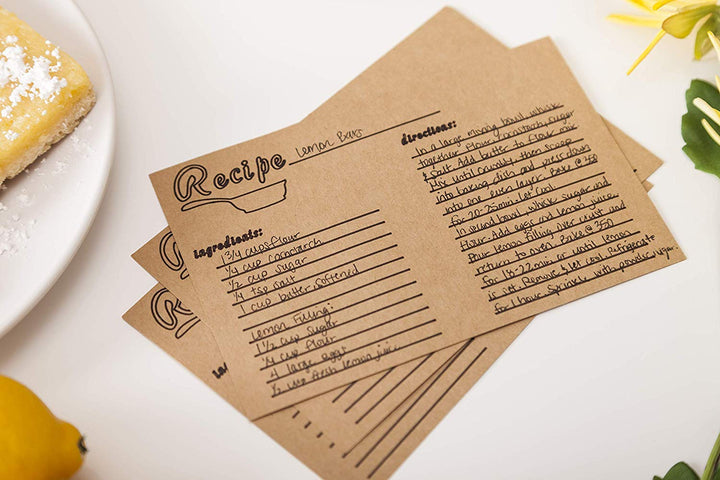 Recipe Lemon Bars
ingredients:
1 3/4 cups flour
1/4 cup cornstarch
1/2 cup sugar
1/4 tsp salt
1 cup butter softened
Lemon Filling:
1 1/2 cup sugar
1/4 cup flour
4 large eggs
1/2 cup fresh lemon juice
directions:
In a large mixing bowl, whisk
together flour, cornstarch, sugar
& salt. Add butter to flour mix
Mix until crumbly, then scoop
into baking dish and press down
into one even layer. Bake @ 350
for 20-25 min. Let cool.
In second bowl, whisk sugar and
flour. Add eggs and lemon juice.
Pour lemon filling over crust and
return to oven. Bake @ 350
for 18-22 min or until lemon
is set. Remove & let cool. Refrigerate
for 1 hour. Sprinkle with powder sugar.